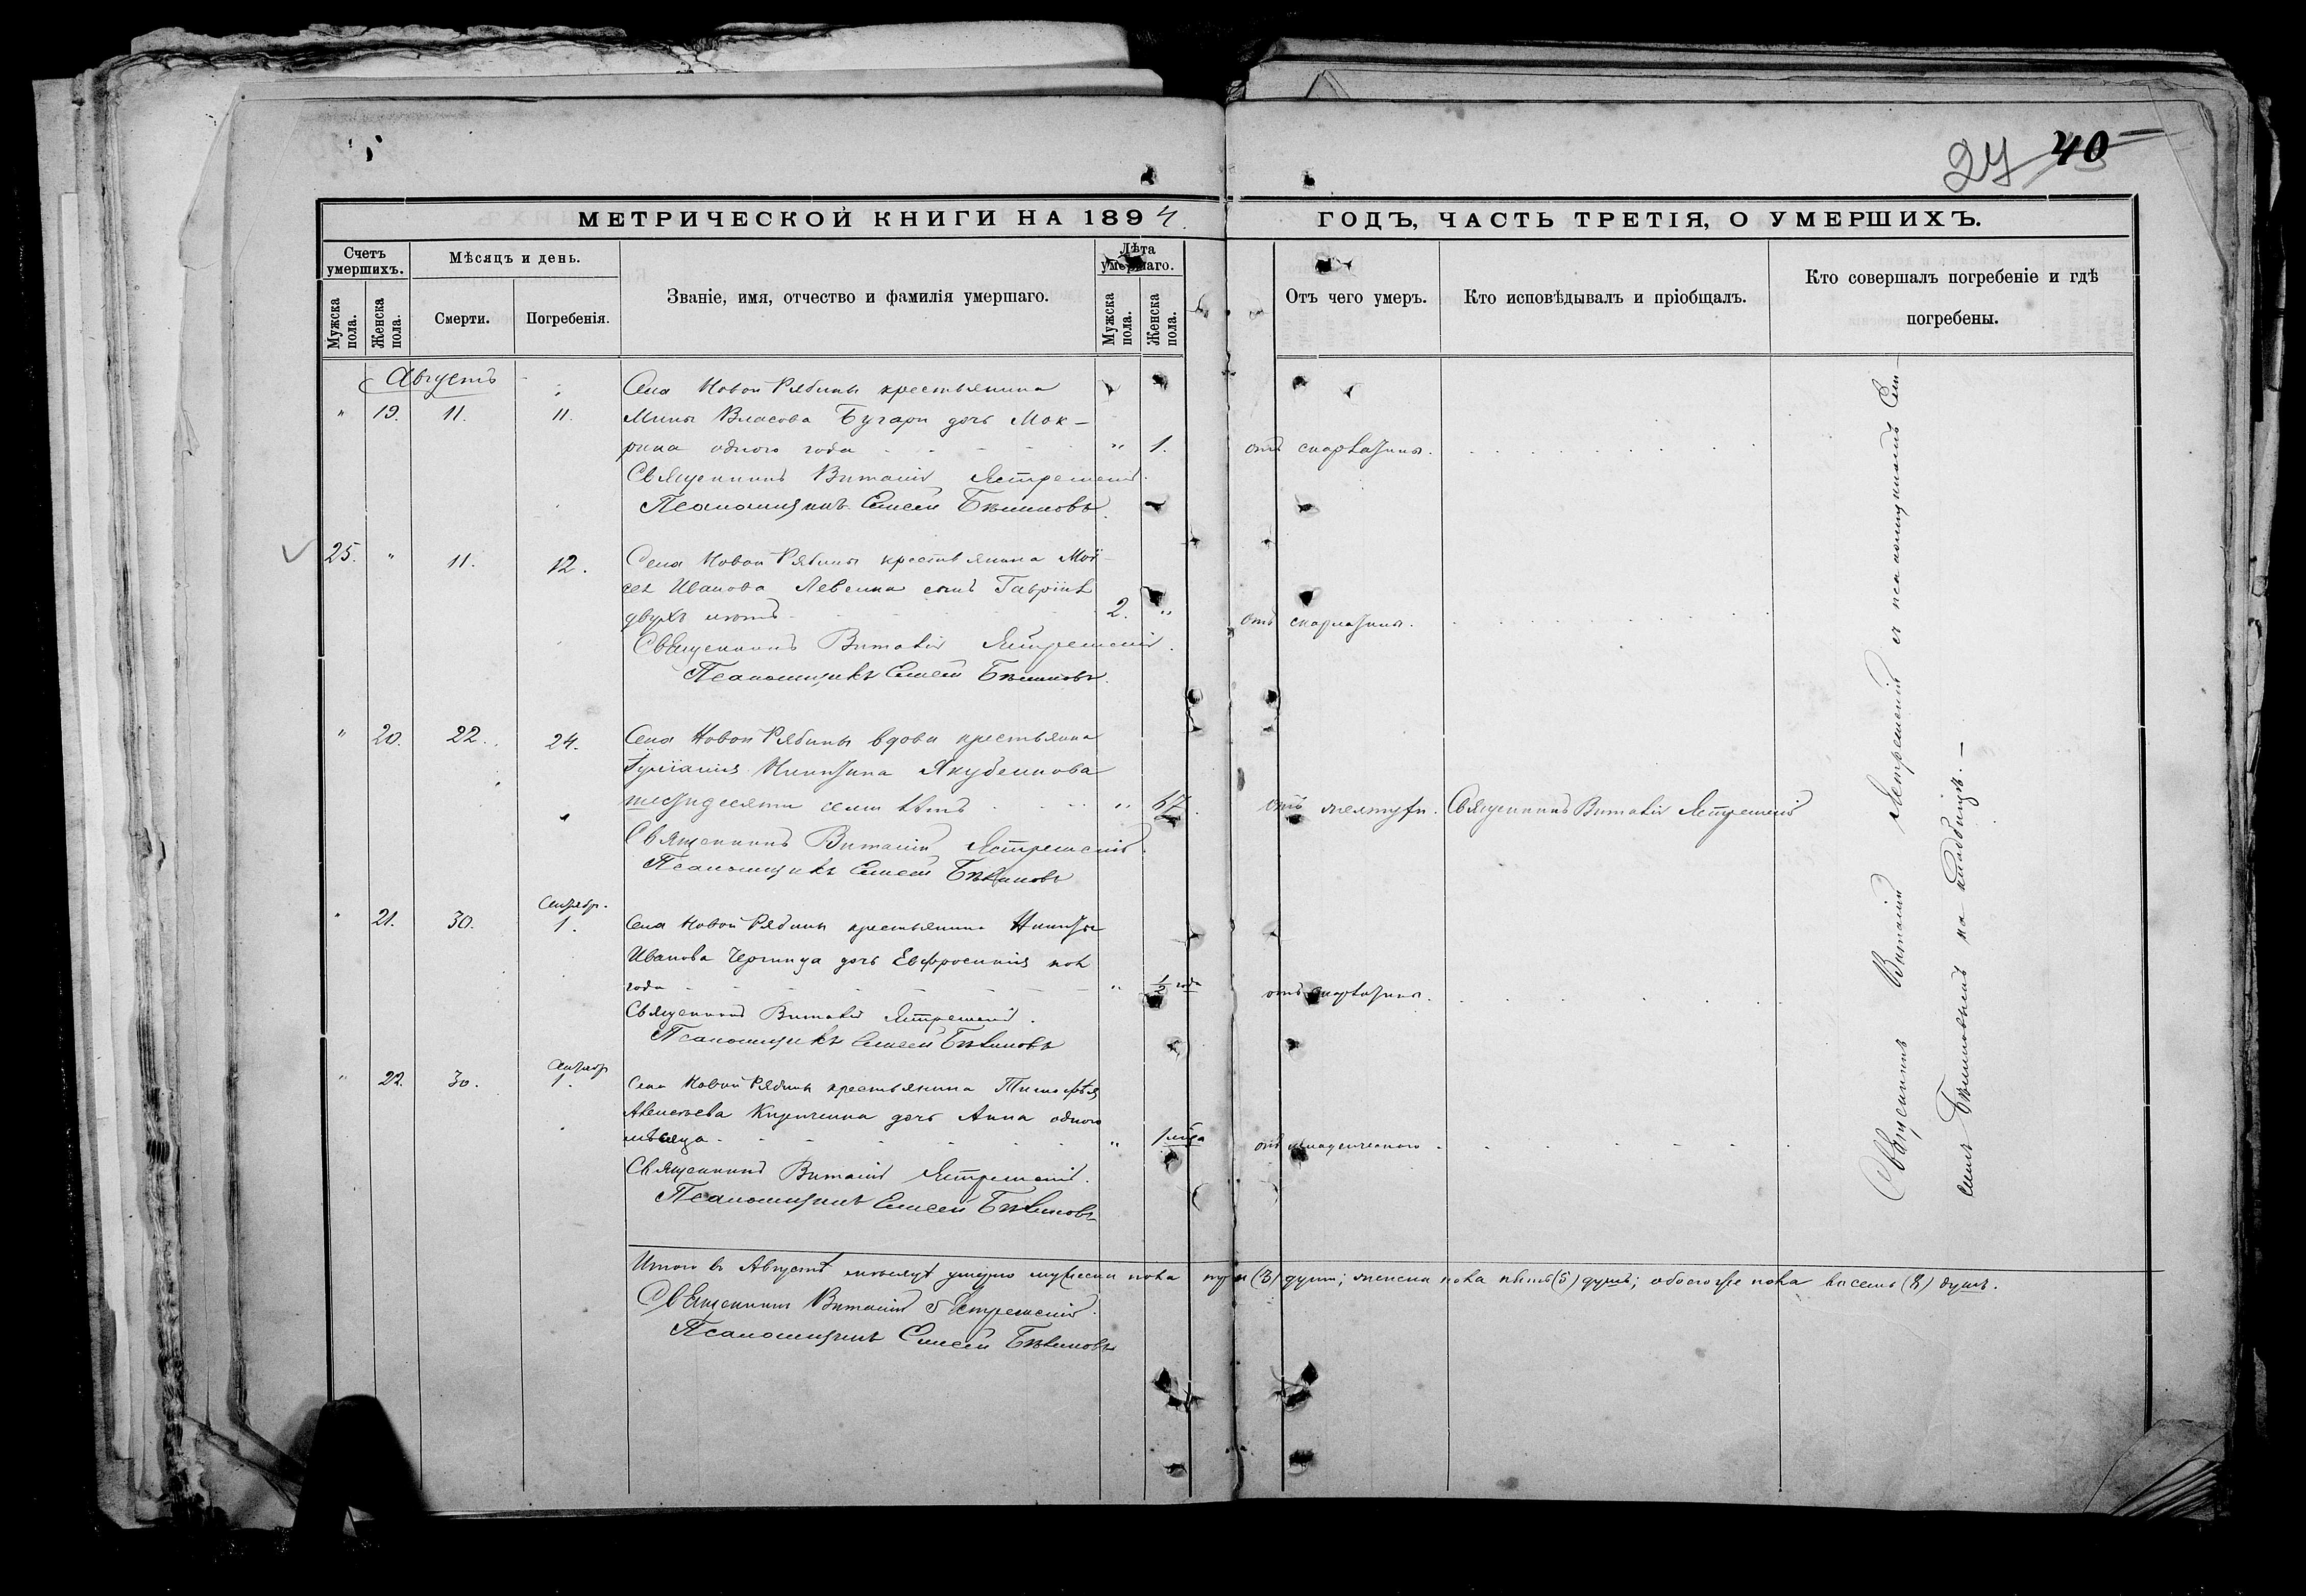 27 40
МЕТРИЧЕСКОЙ КНИГИ НА 1894
ГОДЪ, ЧАСТЬ ТРЕТІЯ, О УМЕРШИХЪ.
Счетъ умершихъ.
Мужска пола.
Женска пола.
Мѣсяцъ и день.
Смерти.
Погребенія.
Званіе, имя, отчество и фамилія умершаго.
Лѣта умершаго.
Мужска пола.
Женска пола.
Отъ чего умеръ.
Кто исповѣдывалъ и пріобщалъ.
Кто совершалъ погребеніе и гдѣ погребены.
Августъ
" 19. 11. 11.
Села Новой Рябины крестьянина
Мины Власова Бугари дочь Мок-
рина одного года " 1. отъ скарлатины.
Священникъ Виталій Ястремскій.
Псаломщикъ Елисей Бѣликовъ.
25. " 11. 12.
Села Новой Рябины крестьянина Мои-
сея Иванова сынъ Гавріилъ
двухъ лѣтъ 2. " отъ скарлатины.
Священникъ Виталій Ястремскій.
Псаломщикъ Елисей Бѣликовъ.
" 20. 22. 24.
Села Новой Рябины вдова крестьянка
Іуліанія Никитина Якубенкова
шестидесяти семи лѣтъ " 67. отъ Священникъ Виталій Ястремскій
Священникъ Виталій Ястремскій.
Псаломщикъ Елисей Бѣликовъ
" 21. 30. Сентябр. 1.
Села Новой Рябины крестьянина Никиты
Иванова дочь Евфросинія пол
года " 1/2 года отъ скарлатины.
Священникъ Виталій Ястремскій.
Псаломщикъ Елисей Бѣликовъ
" 22. 30. Сентябр 1.
Села Новой Рябины крестьянина Тимофѣя
Алексѣева дочь Анна одного
мѣсяца " 1 отъ младенческаго
Священникъ Виталій Ястремскій.
Псаломщикъ Елисей Бѣликовъ
Священникъ Виталій Ястремскій съ псаломщикомъ Ели-
сеемъ Бѣликовымъ на кладбищѣ.
Итого въ Августѣ мѣсяцѣ умерло мужеска пола три (3) души; женска пола пять (5) душъ; обоего же пола восемь (8) душъ.
Священникъ Виталій Ястремскій.
Псаломщикъ Елисей Бѣликовъ